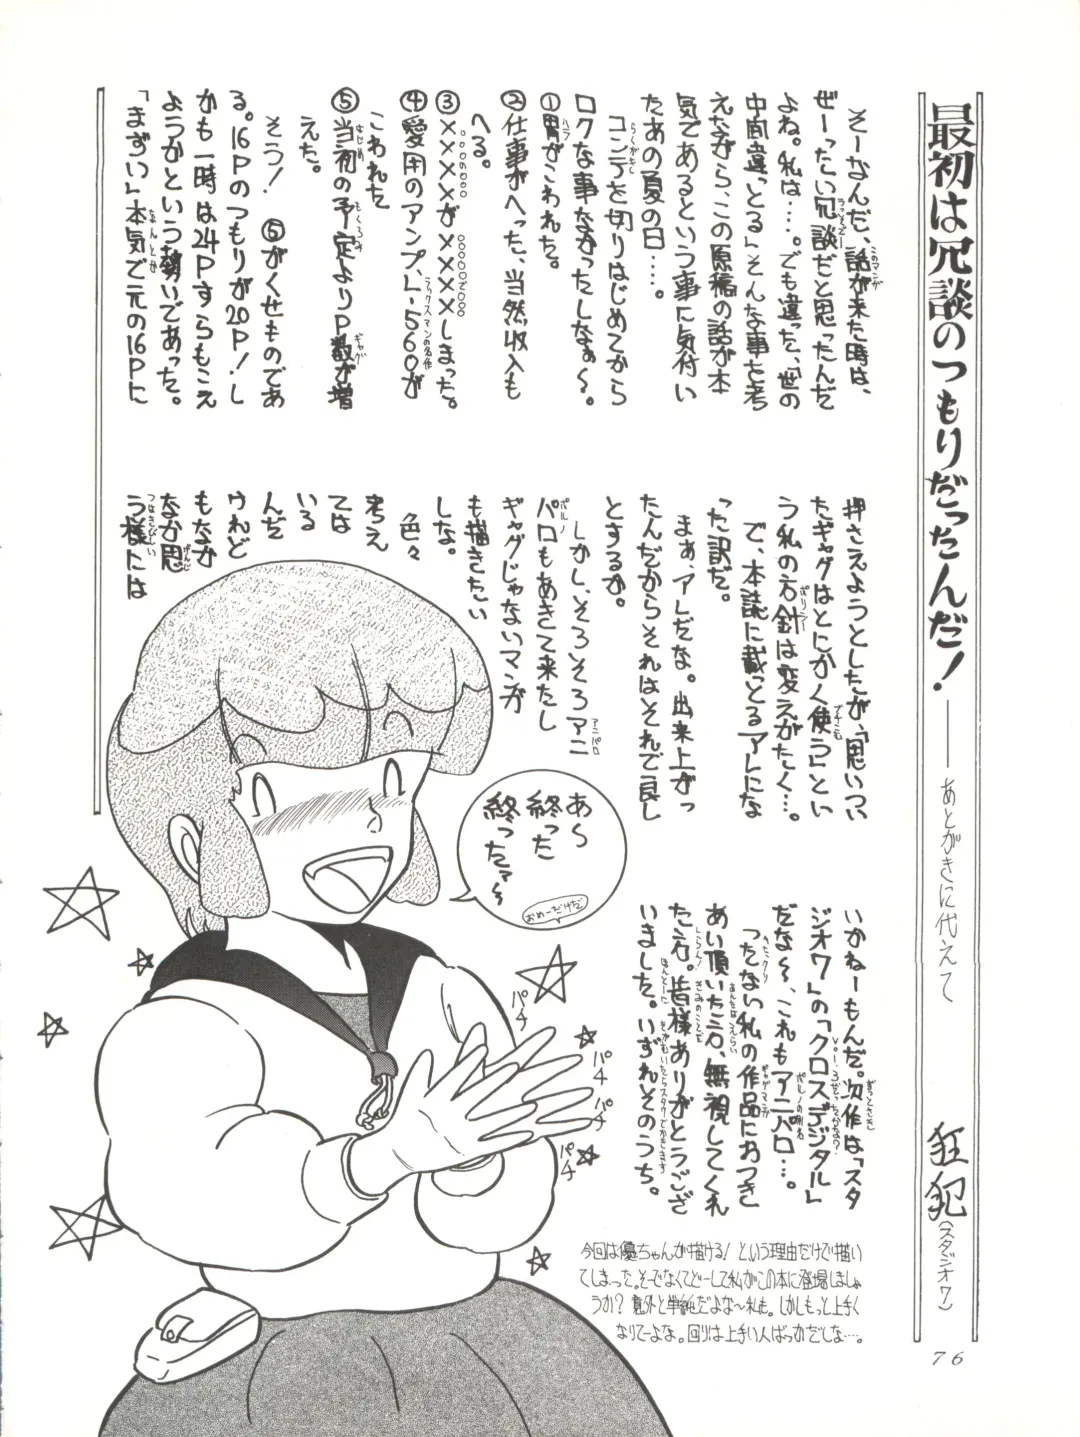 最初は冗談のつもりだったんだ！——あとがきに代えて
狂犯（スタジオワ）
そーなんだ、話が来た時は、
ぜーったい冗談だと思ったんだ
よね。私は…。でも違った、「世の
中間違っとる」そんな事を考
えながら、この原稿の話が本
気であるという事に気付い
たあの夏の日…。
コンテを切りはじめてから
ロクな事なかったしなぁ〜。
①胃がこわれた。
②仕事がへった、当然収入も
へる。
③××××が××××しまった。
④愛用のアンプ、L-560が
こわれた
⑤当初の予定よりP数が増
えた。
そう！⑤がくせものであ
る。16Pのつもりが20P！し
かも一時は24Pすらもこえ
ようかという勢いであった。
「まずい」本気で元の16Pに
押さえようとしたが、「思いつい
たギャグはとにかく使う」とい
う私の方針は変えがたく…。
で、本誌に載っとるアレにな
った訳だ。
まぁ、アレだな。出来上がっ
たんだからそれはそれで良し
とするか。
しかし、そろそろアニ
パロもあきて来たし
ギャグじゃないマンガ
も描きたい
しな。
色々
考え
ては
いる
んだ
けれど
もなか
なか思
う様には
いかねーもんだ。次作は「スタ
ジオワ」の「クロスデジタル」
だな〜、これもアニパロ…。
つたない私の作品におつき
あい頂いた方、無視してくれ
た方。皆様ありがとうござ
いました。いずれそのうち。
あ〜
終った
終ったァ〜
おめーだけだ
パチ
パチ
パチ
パチ
今回は優ちゃんが描ける！という理由だけで描い
てしまった。そーでなくてどーして私がこの本に登場しましょ
うか？意外と単純だよな〜私も。しかしもっと上手く
なりてーよな。回りは上手い人ばっかだしな…。
76